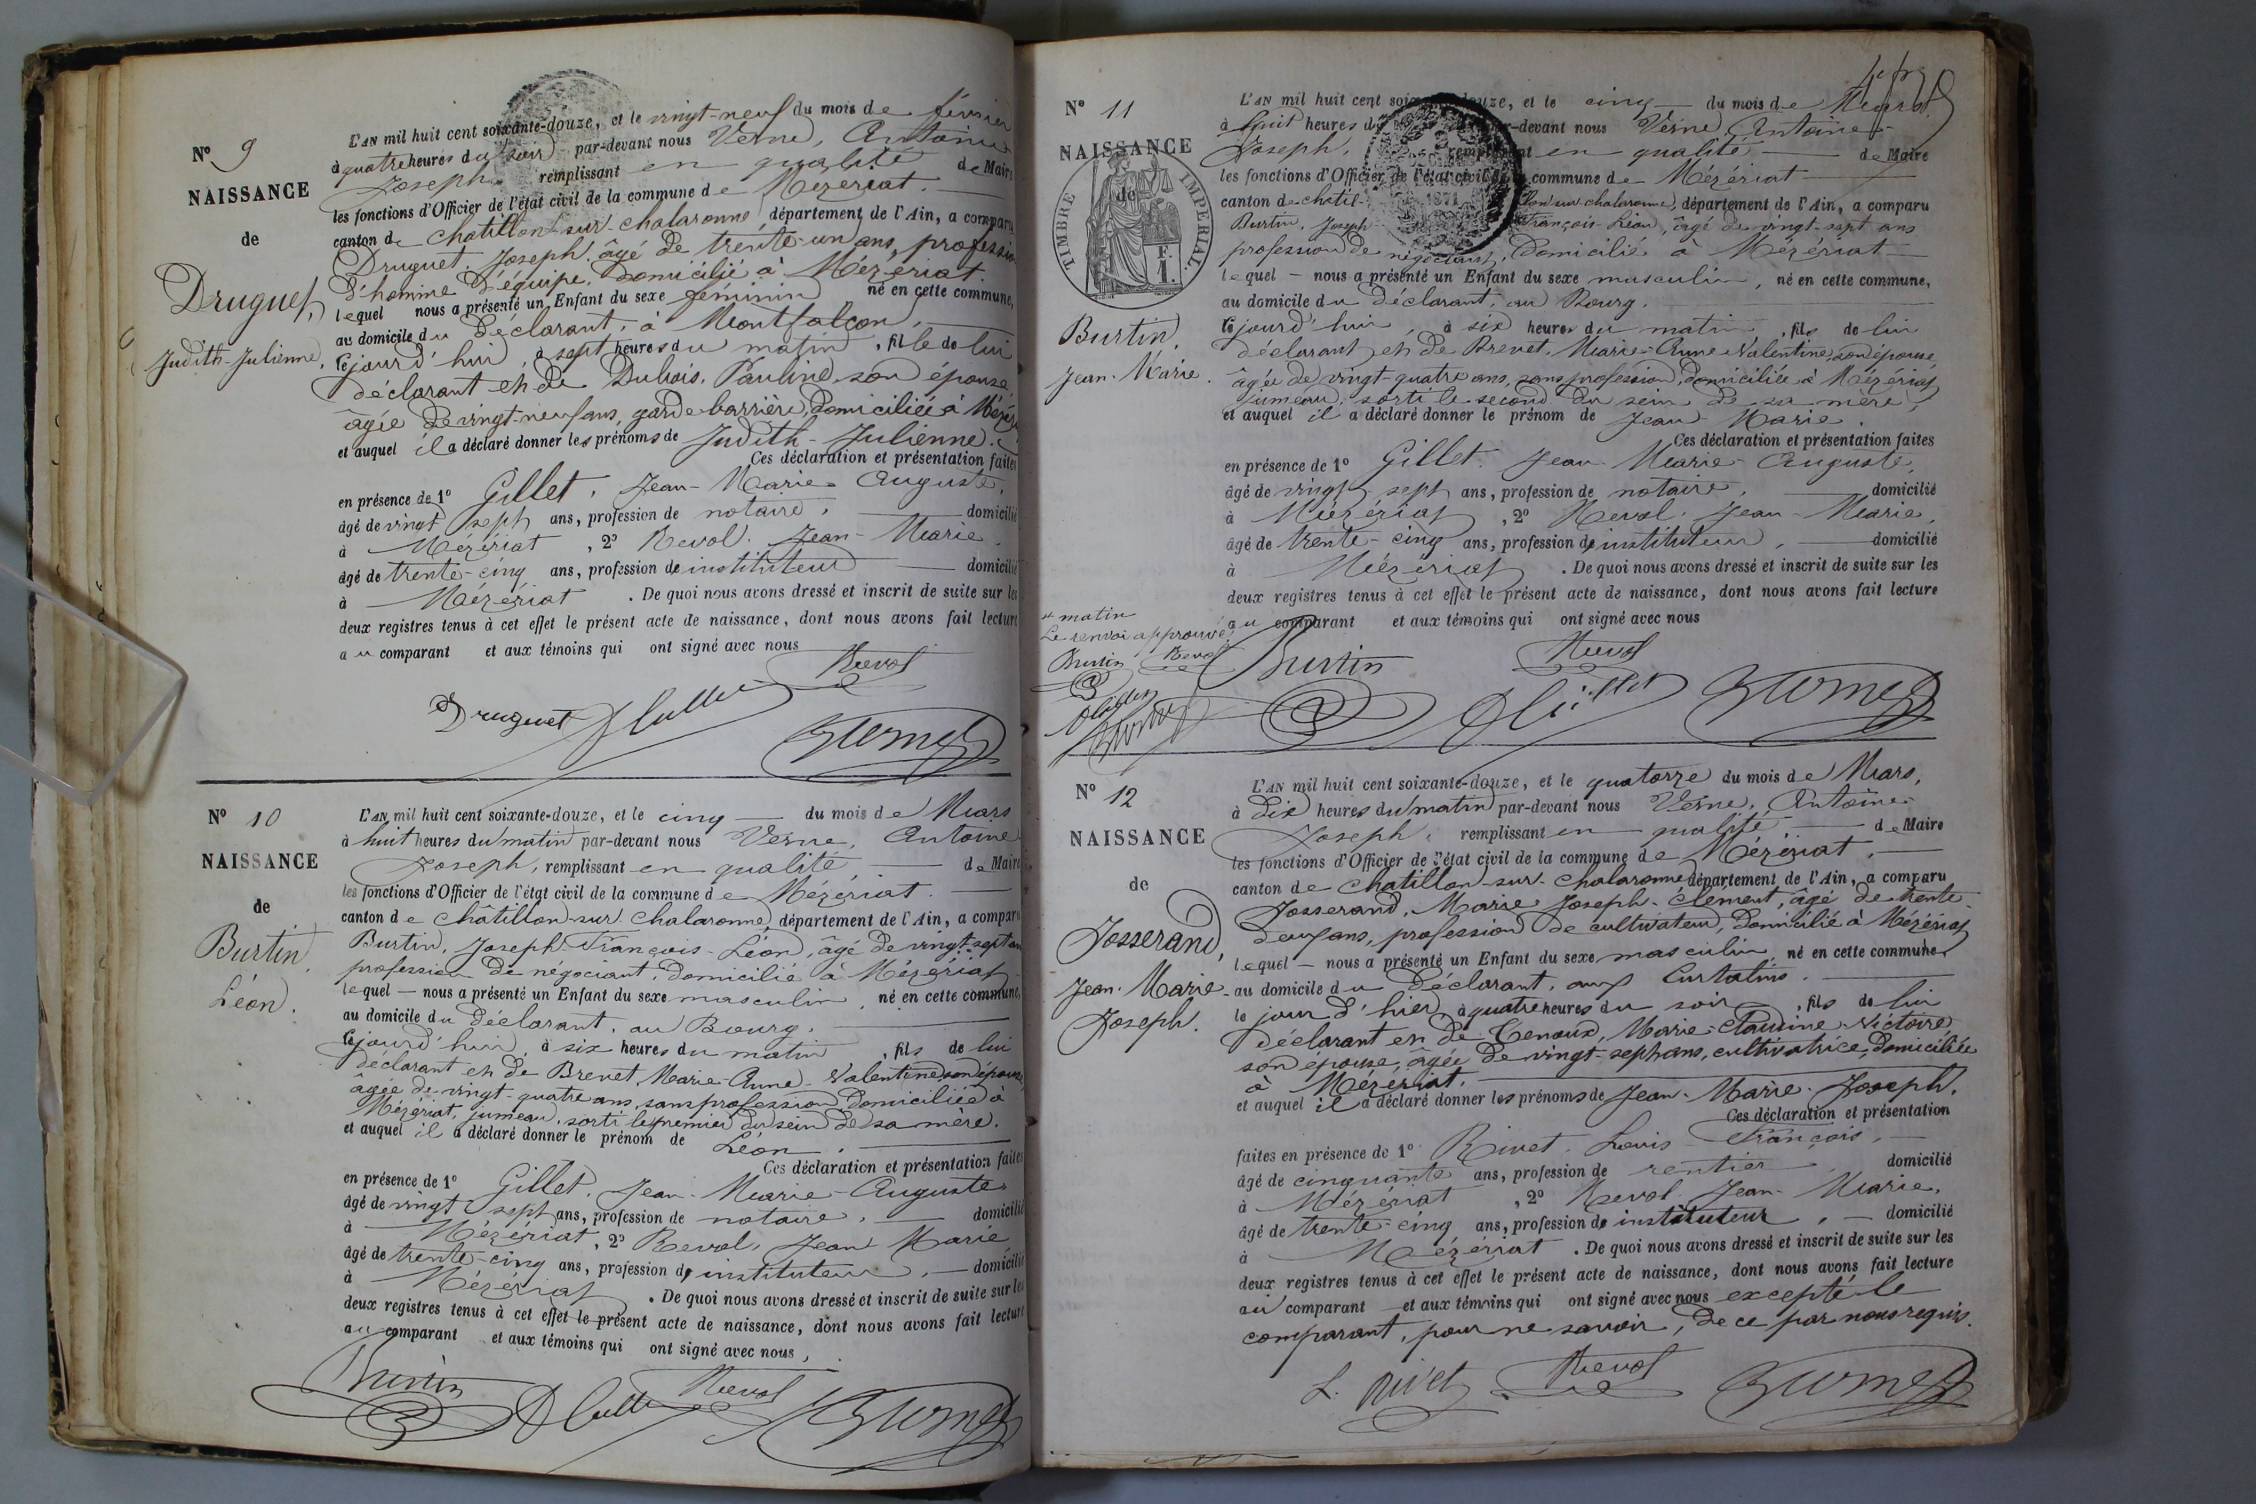 N° 9
NAISSANCE
de
Druguet,
Judith-Julienne.
L'AN mil huit cent soixante-douze, et le vingt-neuf du mois de février
à quatre heures du soir par-devant nous Verne, Antoine
Joseph, remplissant en qualité de Maire
les fonctions d'Officier de l'état civil de la commune de Mézériat.
canton de Chatillon-sur-chalaronne, département de l'Ain, a comparu
Druguet, Joseph, âgé de trente-un ans, profession
d'homme d'équipe, domicilié à Mézériat.
lequel nous a présenté un Enfant du sexe féminin né en cette commune,
au domicile du déclarant, à Montfalcon,
cejourd'hui, à sept heures du matin, fille de lui
déclarant et de Dubois, Pauline, son épouse,
âgée de vingt-neuf ans, garde barrière, domiciliée à Mézériat
et auquel il a déclaré donner les prénoms de Judith-Julienne.
Ces déclaration et présentation faites
en présence de 1° Gillet, Jean-Marie-Auguste,
âgé de vingt sept ans, profession de notaire, domicilié
à Mézériat, 2° Revol, Jean-Marie,
âgé de trente-cinq ans, profession de instituteur domicilié
à Mézériat. De quoi nous avons dressé et inscrit de suite sur les
deux registres tenus à cet effet le présent acte de naissance, dont nous avons fait lecture
au comparant et aux témoins qui ont signé avec nous
Revol
Druguet
N° 10
NAISSANCE
de
Burtin,
Léon.
L'AN mil huit cent soixante-douze, et le cinq du mois de Mars
à huit heures du matin par-devant nous Verne, Antoine
Joseph, remplissant en qualité de Maire
les fonctions d'Officier de l'état civil de la commune de Mézériat.
canton de Châtillon-sur-Chalaronne, département de l'Ain, a comparu
Burtin, Joseph-François-Léon, âgé de vingt-sept ans
profession de négociant, domicilié à Mézériat
lequel nous a présenté un Enfant du sexe masculin, né en cette commune,
au domicile du déclarant, au Bourg,
cejourd'hui, à six heures du matin, fils de lui
déclarant et de Brevet, Marie-Anne-Valentine, son épouse,
âgée de vingt-quatre ans, sans profession, domiciliée à
Mézériat, jumeau, sorti le premier du sein de sa mère.
et auquel il a déclaré donner le prénom de Léon.
Ces déclaration et présentation faites
en présence de 1° Gillet, Jean-Marie-Auguste
âgé de vingt sept ans, profession de notaire, domicilié
à Mézériat, 2° Revol, Jean Marie
âgé de trente-cinq ans, profession de instituteur, domicilié
à Mézériat. De quoi nous avons dressé et inscrit de suite sur les
deux registres tenus à cet effet le présent acte de naissance, dont nous avons fait lecture
au comparant et aux témoins qui ont signé avec nous,
Burtin Revol
N° 11
NAISSANCE
de
TIMBRE IMPÉRIAL
F. 1.
Burtin,
Jean-Marie.
L'AN mil huit cent soixante-douze, et le cinq du mois de Mars
à huit heures du par-devant nous Verne, Antoine-
Joseph, remplissant en qualité de Maire
les fonctions d'Officier de l'état civil de la commune de Mézériat
canton de chatil- lon sur chalaronne, département de l'Ain, a comparu
Burtin, Joseph François-Léon, âgé de vingt-sept ans
profession de négociant, domicilié à Mézériat
lequel nous a présenté un Enfant du sexe masculin, né en cette commune,
au domicile du déclarant, au Bourg,
cejourd'hui, à six heures du matin, fils de lui
déclarant et de Brevet, Marie-Anne-Valentine, son épouse,
âgée de vingt-quatre ans, sans profession, domiciliée à Mézériat
jumeau, sorti le second du sein de sa mère,
et auquel il a déclaré donner le prénom de Jean Marie.
Ces déclaration et présentation faites
en présence de 1° Gillet, Jean-Marie-Auguste,
âgé de vingt-sept ans, profession de notaire, domicilié
à Mézériat, 2° Revol, Jean-Marie,
âgé de trente-cinq ans, profession de instituteur, domicilié
à Mézériat. De quoi nous avons dressé et inscrit de suite sur les
deux registres tenus à cet effet le présent acte de naissance, dont nous avons fait lecture
au comparant et aux témoins qui ont signé avec nous
matin
Le renvoi approuvé,
Burtin Revol
Burtin Revol
N° 12
NAISSANCE
de
Josserand,
Jean-Marie-
Joseph.
L'AN mil huit cent soixante-douze, et le quatorze du mois de Mars,
à dix heures du matin par-devant nous Verne, Antoine-
Joseph, remplissant en qualité de Maire
les fonctions d'Officier de l'état civil de la commune de Mézériat,
canton de chatillon-sur-chalaronne département de l'Ain, a comparu
Josserand, Marie Joseph-Clément, âgé de trente-
deux ans, profession de cultivateur, domicilié à Mézériat
lequel nous a présenté un Enfant du sexe masculin, né en cette commune,
au domicile du déclarant, aux Curtalins.
le jour d'hier, à quatre heures du soir, fils de lui
déclarant et de Tenoux, Marie-Claudine-Victoire,
son épouse, âgée de vingt-sept ans, cultivatrice, domiciliée
à Mézériat.
et auquel il a déclaré donner les prénoms de Jean-Marie-Joseph.
Ces déclaration et présentation
faites en présence de 1° Rivet, Louis François,
âgé de cinquante ans, profession de rentier domicilié
à Mézériat, 2° Revol, Jean-Marie,
âgé de trente-cinq ans, profession de instituteur, domicilié
à Mézériat. De quoi nous avons dressé et inscrit de suite sur les
deux registres tenus à cet effet le présent acte de naissance, dont nous avons fait lecture
au comparant et aux témoins qui ont signé avec nous excepté le
comparant, pour ne savoir, de ce par nous requis.
L. Rivet Revol